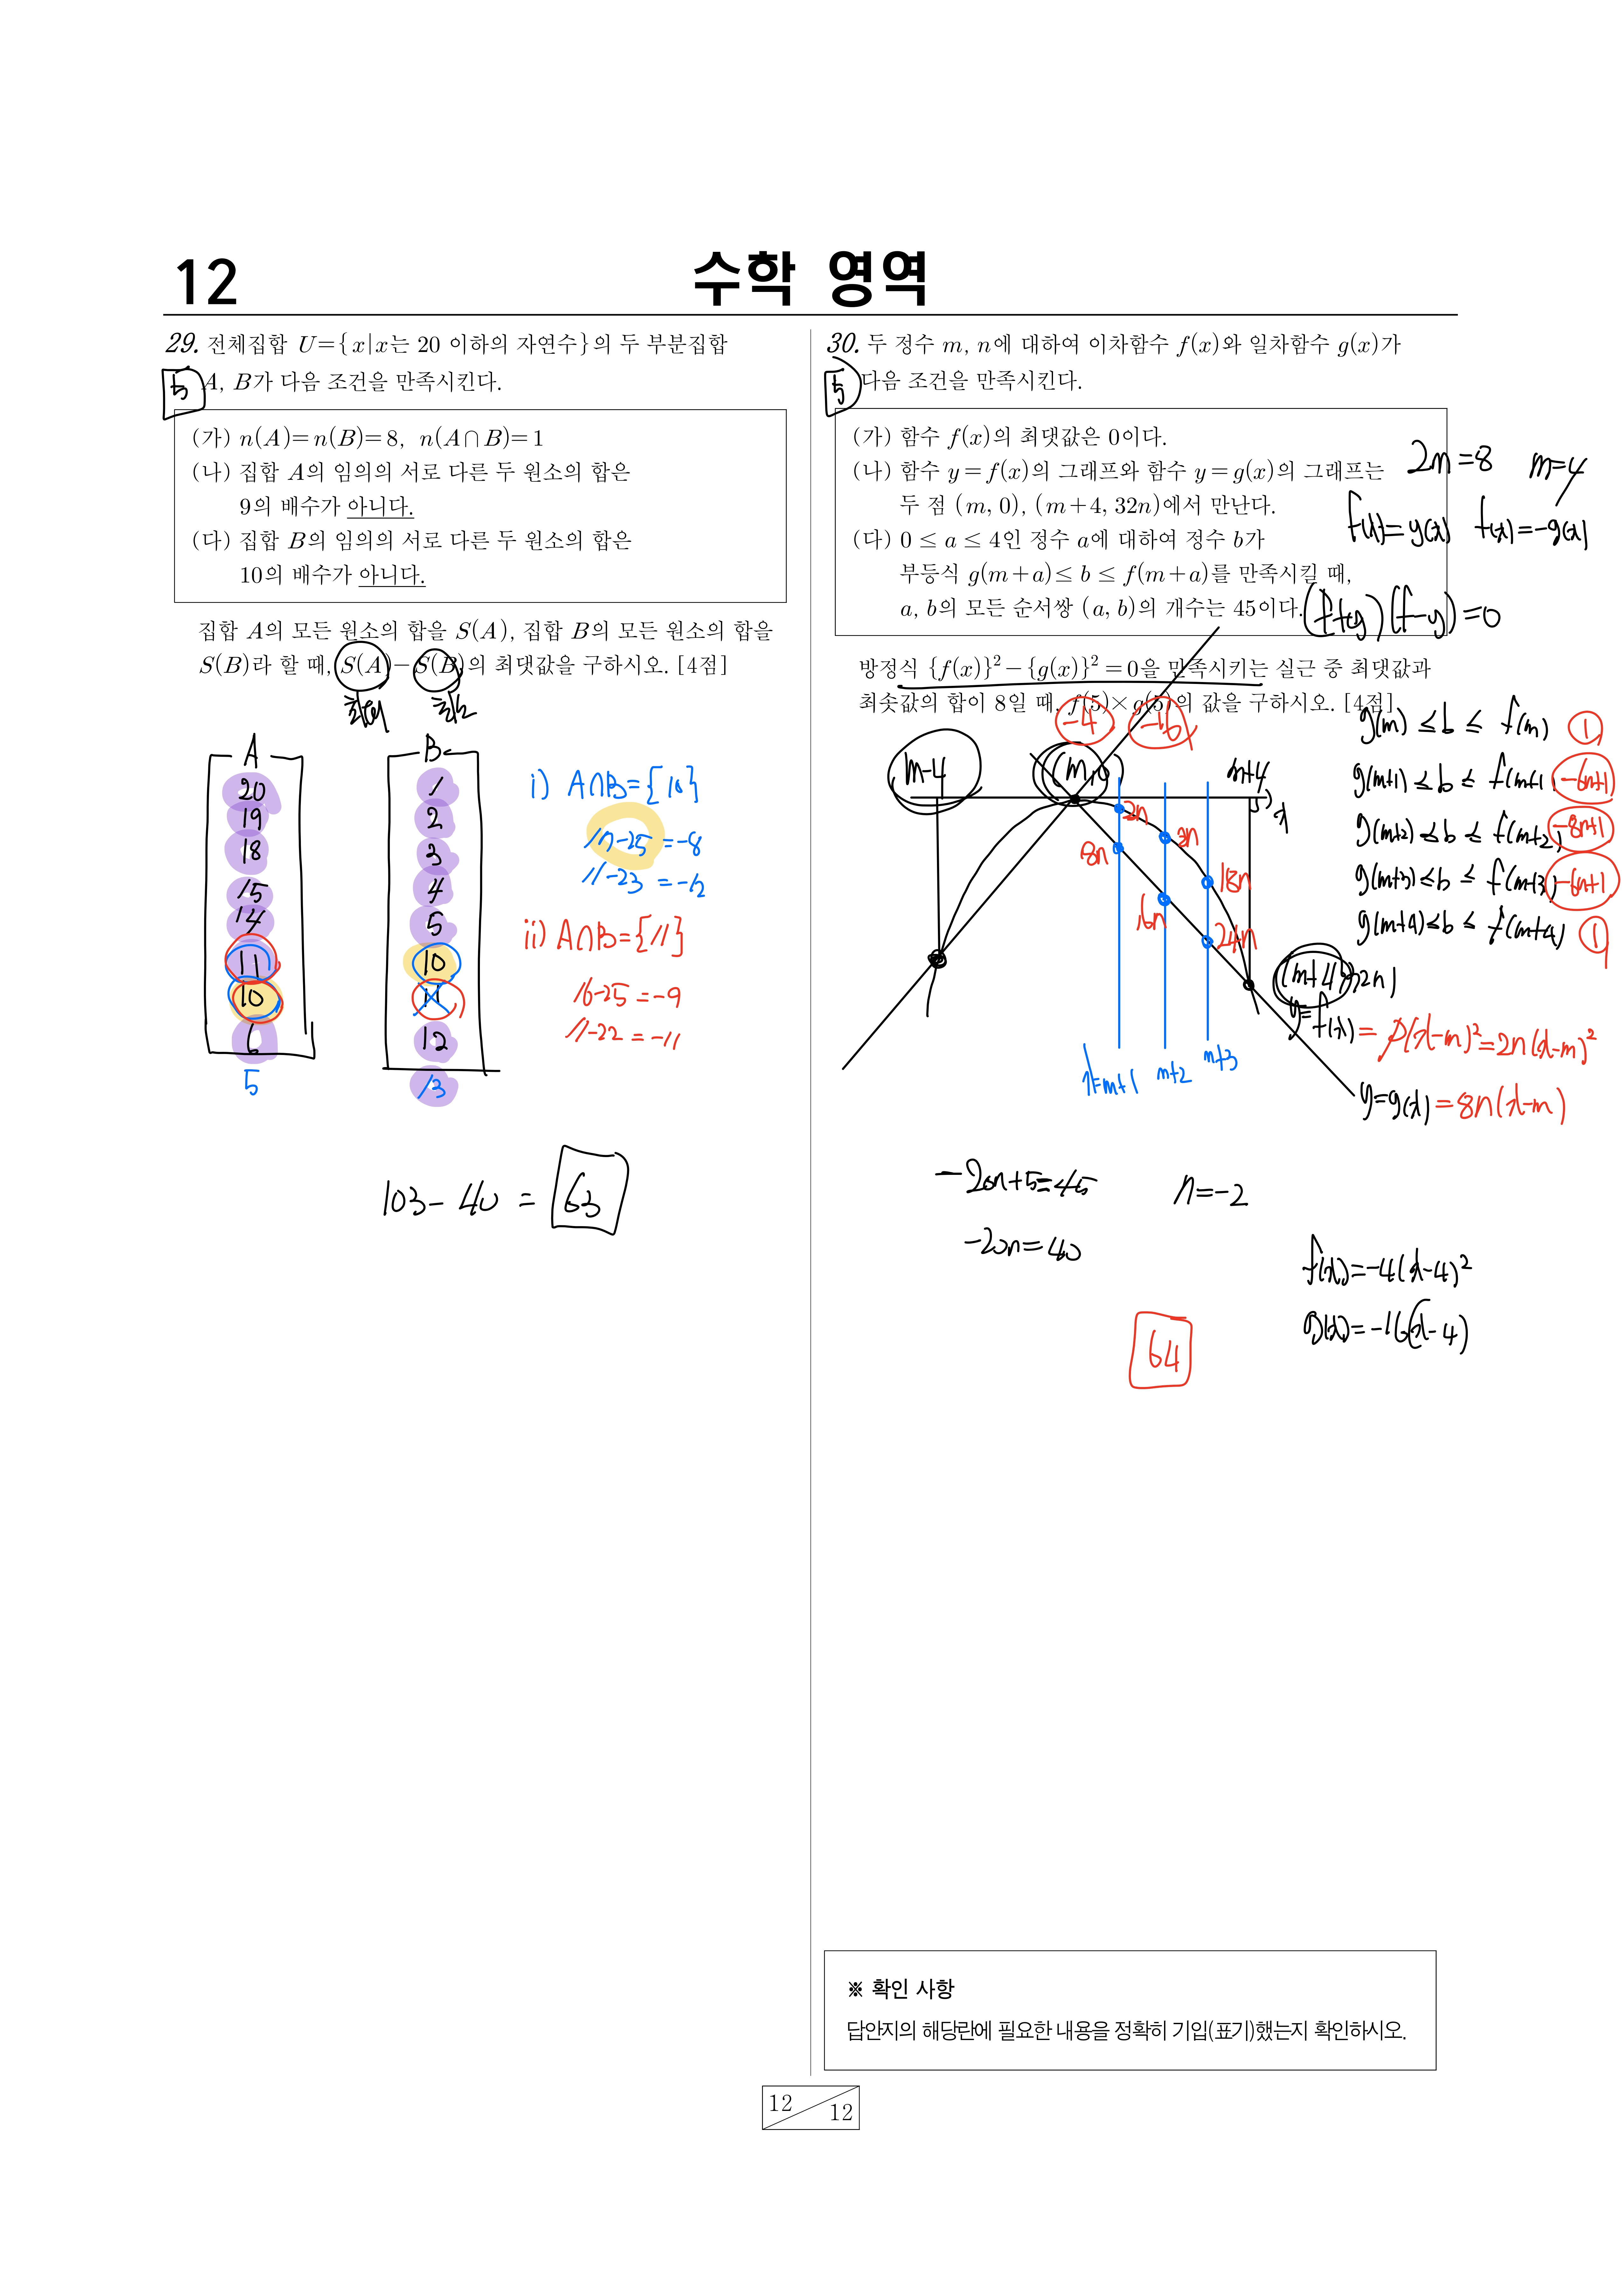 12
수학 영역
29. 전체집합 U={x|x는 20 이하의 자연수}의 두 부분집합
A, B가 다음 조건을 만족시킨다.
5
(가) n(A)=n(B)=8, n(A∩B)=1
(나) 집합 A의 임의의 서로 다른 두 원소의 합은
9의 배수가 아니다.
(다) 집합 B의 임의의 서로 다른 두 원소의 합은
10의 배수가 아니다.
집합 A의 모든 원소의 합을 S(A), 집합 B의 모든 원소의 합을
S(B)라 할 때, S(A)-S(B)의 최댓값을 구하시오. [4점]
최대 최소
A
20
19
18
15
14
11
10
6
5
B
1
2
3
4
5
10
11
12
13
i) A∩B={10}
17-25=-8
11-23=-12
ii) A∩B={11}
16-25=-9
11-22=-11
103-40=63
30. 두 정수 m, n에 대하여 이차함수 f(x)와 일차함수 g(x)가
다음 조건을 만족시킨다.
5
(가) 함수 f(x)의 최댓값은 0이다.
(나) 함수 y=f(x)의 그래프와 함수 y=g(x)의 그래프는
두 점 (m, 0), (m+4, 32n)에서 만난다.
(다) 0≤a≤4인 정수 a에 대하여 정수 b가
부등식 g(m+a)≤b≤f(m+a)를 만족시킬 때,
a, b의 모든 순서쌍 (a, b)의 개수는 45이다.
방정식 {f(x)}²-{g(x)}²=0을 만족시키는 실근 중 최댓값과
최솟값의 합이 8일 때, f(5)×g(5)의 값을 구하시오. [4점]
2m=8 m=4
f(x)=g(x) f(x)=-g(x)
(f+g)(f-g)=0
-4 -16
g(m)≤b≤f(m) 1
g(m+1)≤b≤f(m+1) -6n+1
g(m+2)≤b≤f(m+2) -8n+1
g(m+3)≤b≤f(m+3) -6n+1
g(m+4)≤b≤f(m+4) 1
m-4
(m,0)
m+4
x
2n
8n
8n
16n
18n
24n
(m+4,32n)
x=m+1
m+2
m+3
y=f(x)=p(x-m)²=2n(x-m)²
y=g(x)=8n(x-m)
-20n+5=45
n=-2
-20n=40
f(x)=-4(x-4)²
g(x)=-16(x-4)
64
※ 확인 사항
답안지의 해당란에 필요한 내용을 정확히 기입(표기)했는지 확인하시오.
12
12